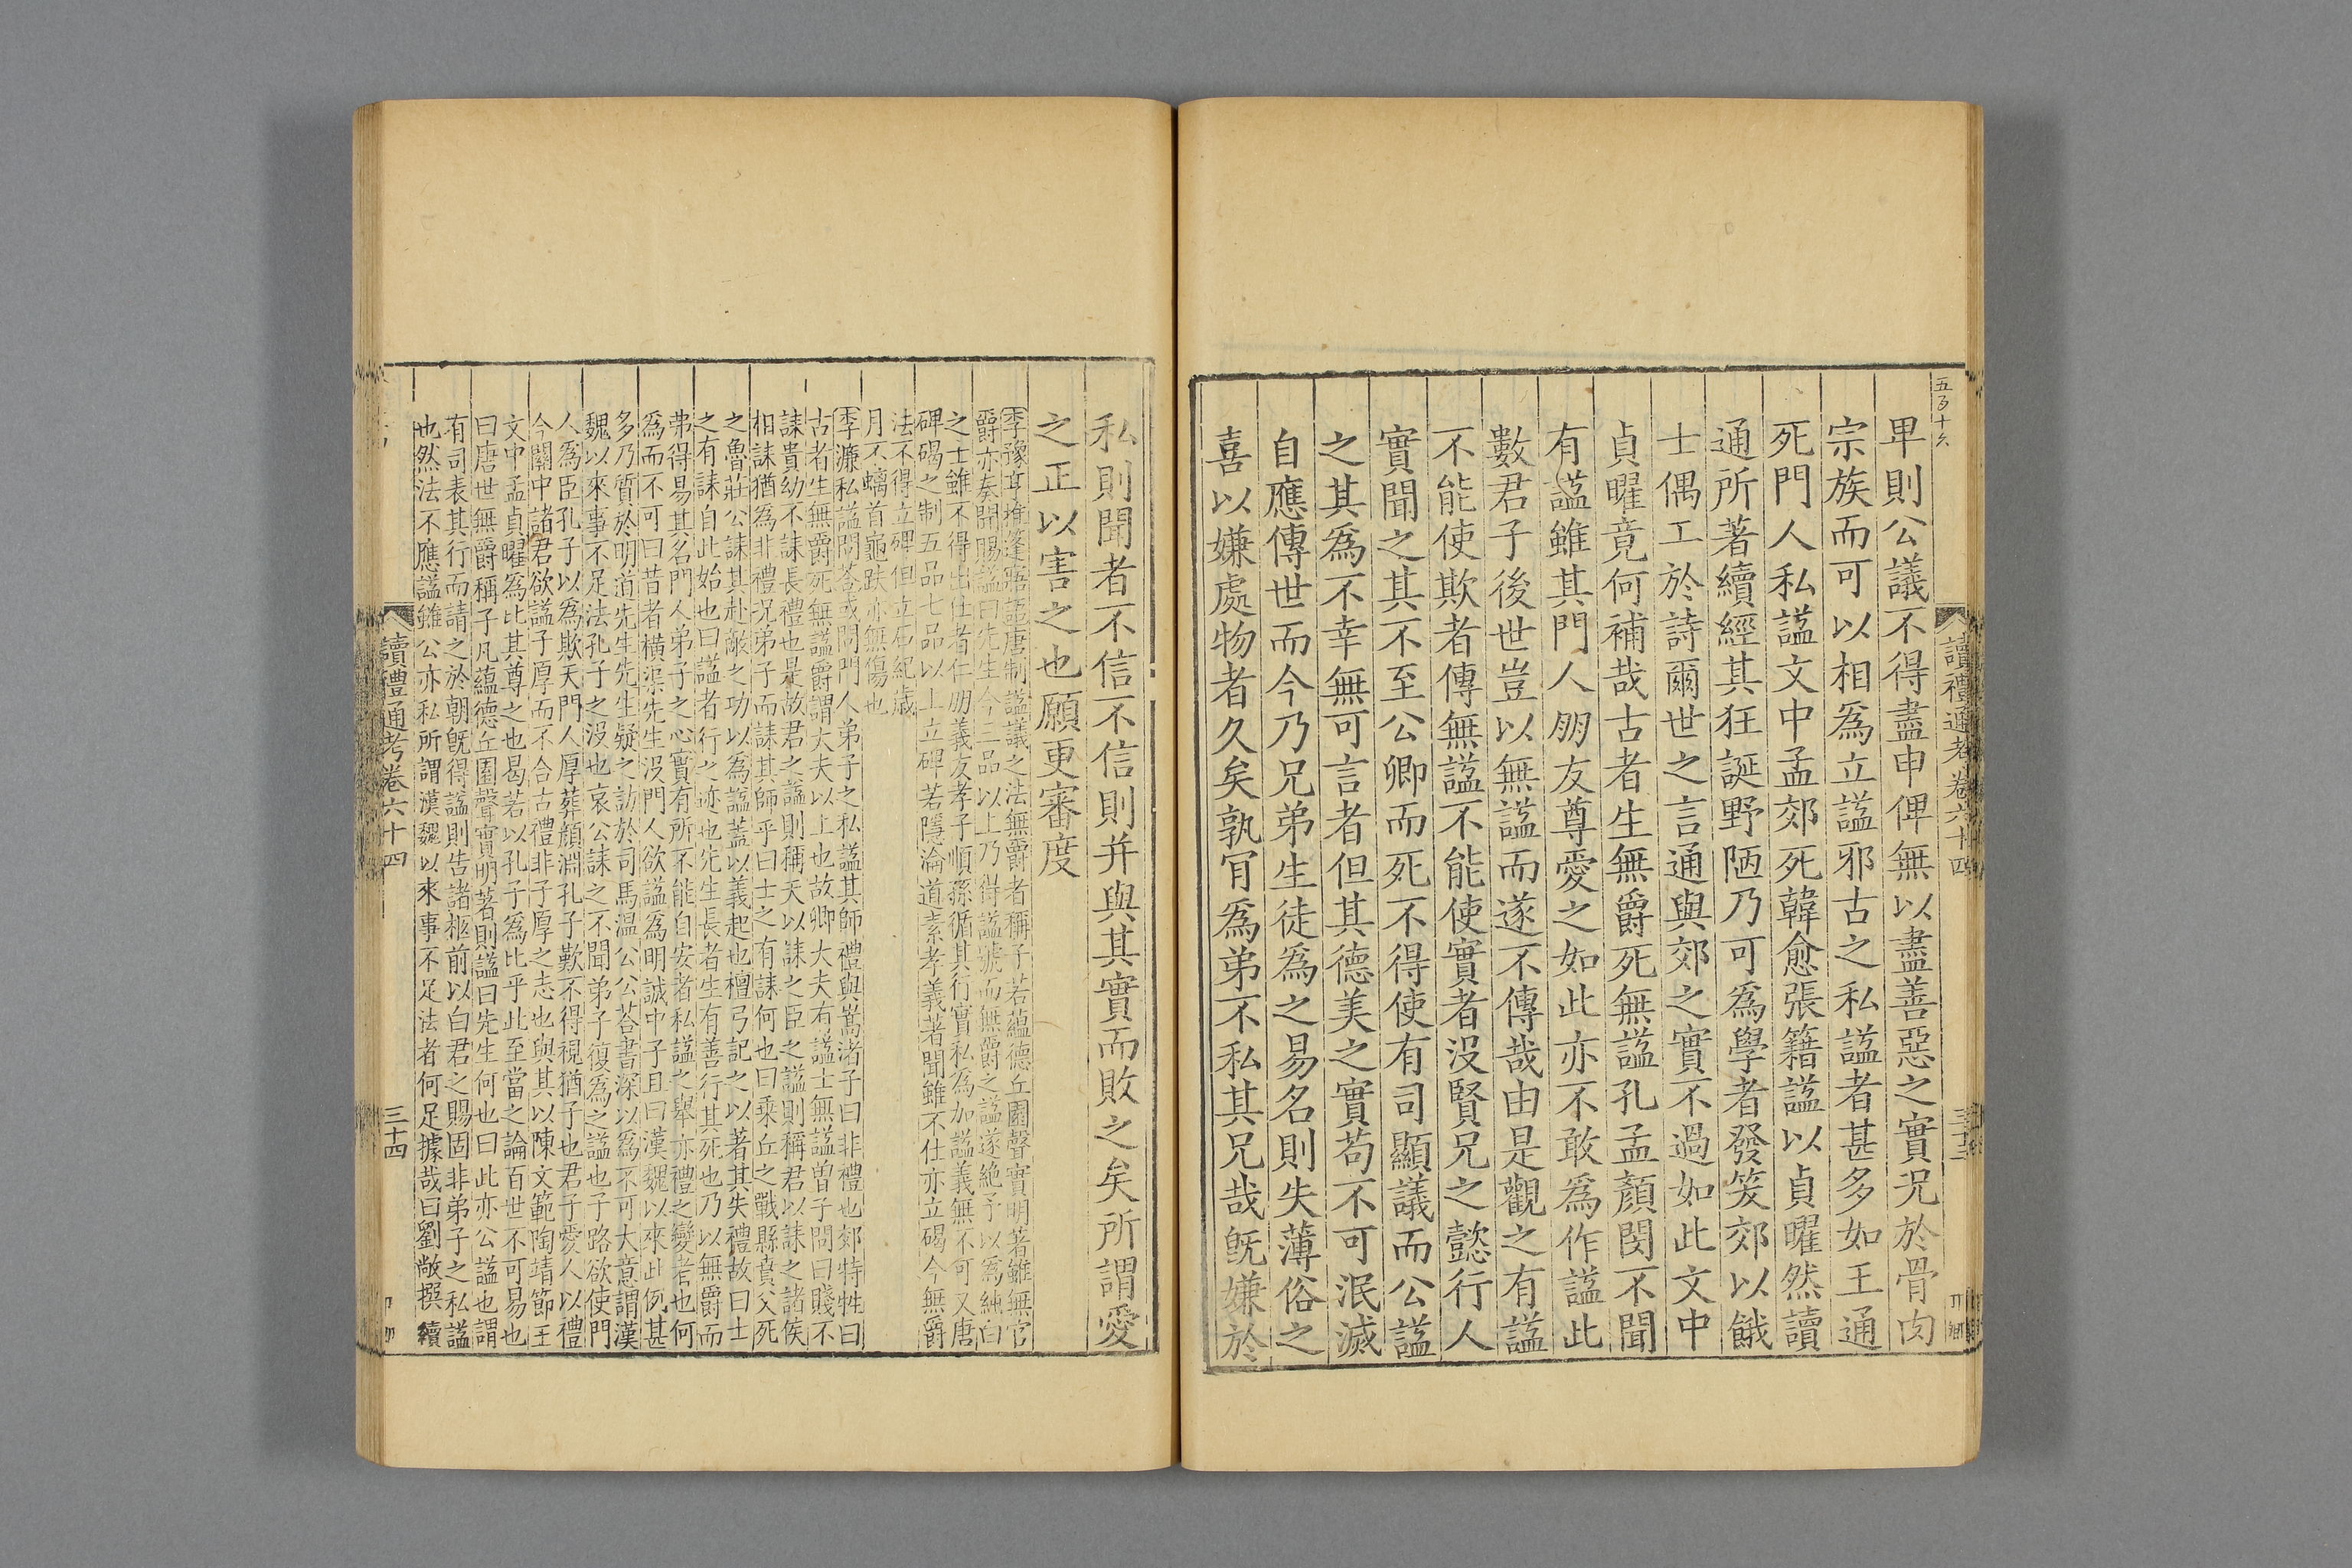 五百十六
讀禮通考卷六十四
三十三
卑則公議不得盡申俾無以盡善惡之實況於骨肉
宗族而可以相爲立諡邪古之私諡者甚多如王通
死門人私諡文中孟郊死韓愈張籍諡以貞曜然讀
通所著續經其狂誕野陋乃可爲學者發笑郊以餓
士偶工於詩爾世之言通與郊之實不過如此文中
貞曜竟何補哉古者生無爵死無諡孔孟顏閔不聞
有諡雖其門人朋友尊愛之如此亦不敢爲作諡此
數君子後世豈以無諡而遂不傳哉由是觀之有諡
不能使欺者傳無諡不能使實者沒賢兄之懿行人
實聞之其不至公卿而死不得使有司顯議而公諡
之其爲不幸無可言者但其德美之實苟不可泯滅
自應傳世而今乃兄弟生徒爲之易名則失薄俗之
喜以嫌處物者久矣孰肎爲弟不私其兄哉旣嫌於
私則聞者不信不信則并與其實而敗之矣所謂愛
之正以害之也願更審度
李豫亨推蓬寤語唐制諡議之法無爵者稱子若蘊德丘園聲實明著雖無官
爵亦奏聞賜諡曰先生今三品以上乃得諡號而無爵之諡遂絶予以爲紳白
之士雖不得出仕者仁朋義友孝子順孫循其行實私爲加諡義無不可又唐
碑碣之制五品七品以上立碑若隱淪道素孝義著聞雖不仕亦立碣今無爵
法不得立碑但立石紀歲
月不螭首龜趺亦無傷也
李濂私諡問荅或問門人弟子之私諡其師禮與嵩渚子曰非禮也郊特牲曰
古者生無爵死無諡爵謂大夫以上也故卿大夫有諡士無諡曾子問曰賤不
誄貴幼不誄長禮也是故君之諡則稱天以誄之臣之諡則稱君以誄之諸侯
相誄猶爲非禮況弟子而誄其師乎曰士之有誄何也曰乘丘之戰縣賁父死
之魯莊公誄其赴敵之功以為諡蓋以義起也檀弓記之以著其失禮故曰士
之有誄自此始也曰諡者行之迹也先生長者生有善行其死也乃以無爵而
弗得易其名門人弟子之心實有所不能自安者私諡之舉亦禮之變者也何
爲而不可曰昔者橫渠先生沒門人欲諡爲明誠中子且曰漢魏以來此例甚
多乃質於明道先生先生疑之訪於司馬温公公荅書深以爲不可大意謂漢
魏以來事不足法孔子之沒也哀公誄之不聞弟子復爲之諡也子路欲使門
人爲臣孔子以爲欺天門人厚葬顏淵孔子歎不得視猶子也君子愛人以禮
今關中諸君欲諡子厚而不合古禮非子厚之志也與其以陳文範陶靖節王
文中孟貞曜爲比其尊之也曷若以孔子爲比乎此至當之論百世不可易也
曰唐世無爵稱子凡蘊德丘園聲實明著則諡曰先生何也曰此亦公諡也謂
有司表其行而請之於朝旣得諡則告諸柩前以白君之賜固非弟子之私諡
也然法不應諡雖公亦私所謂漢魏以來事不足法者何足據哉曰劉敞撰續
讀禮通考卷六十四
三十四